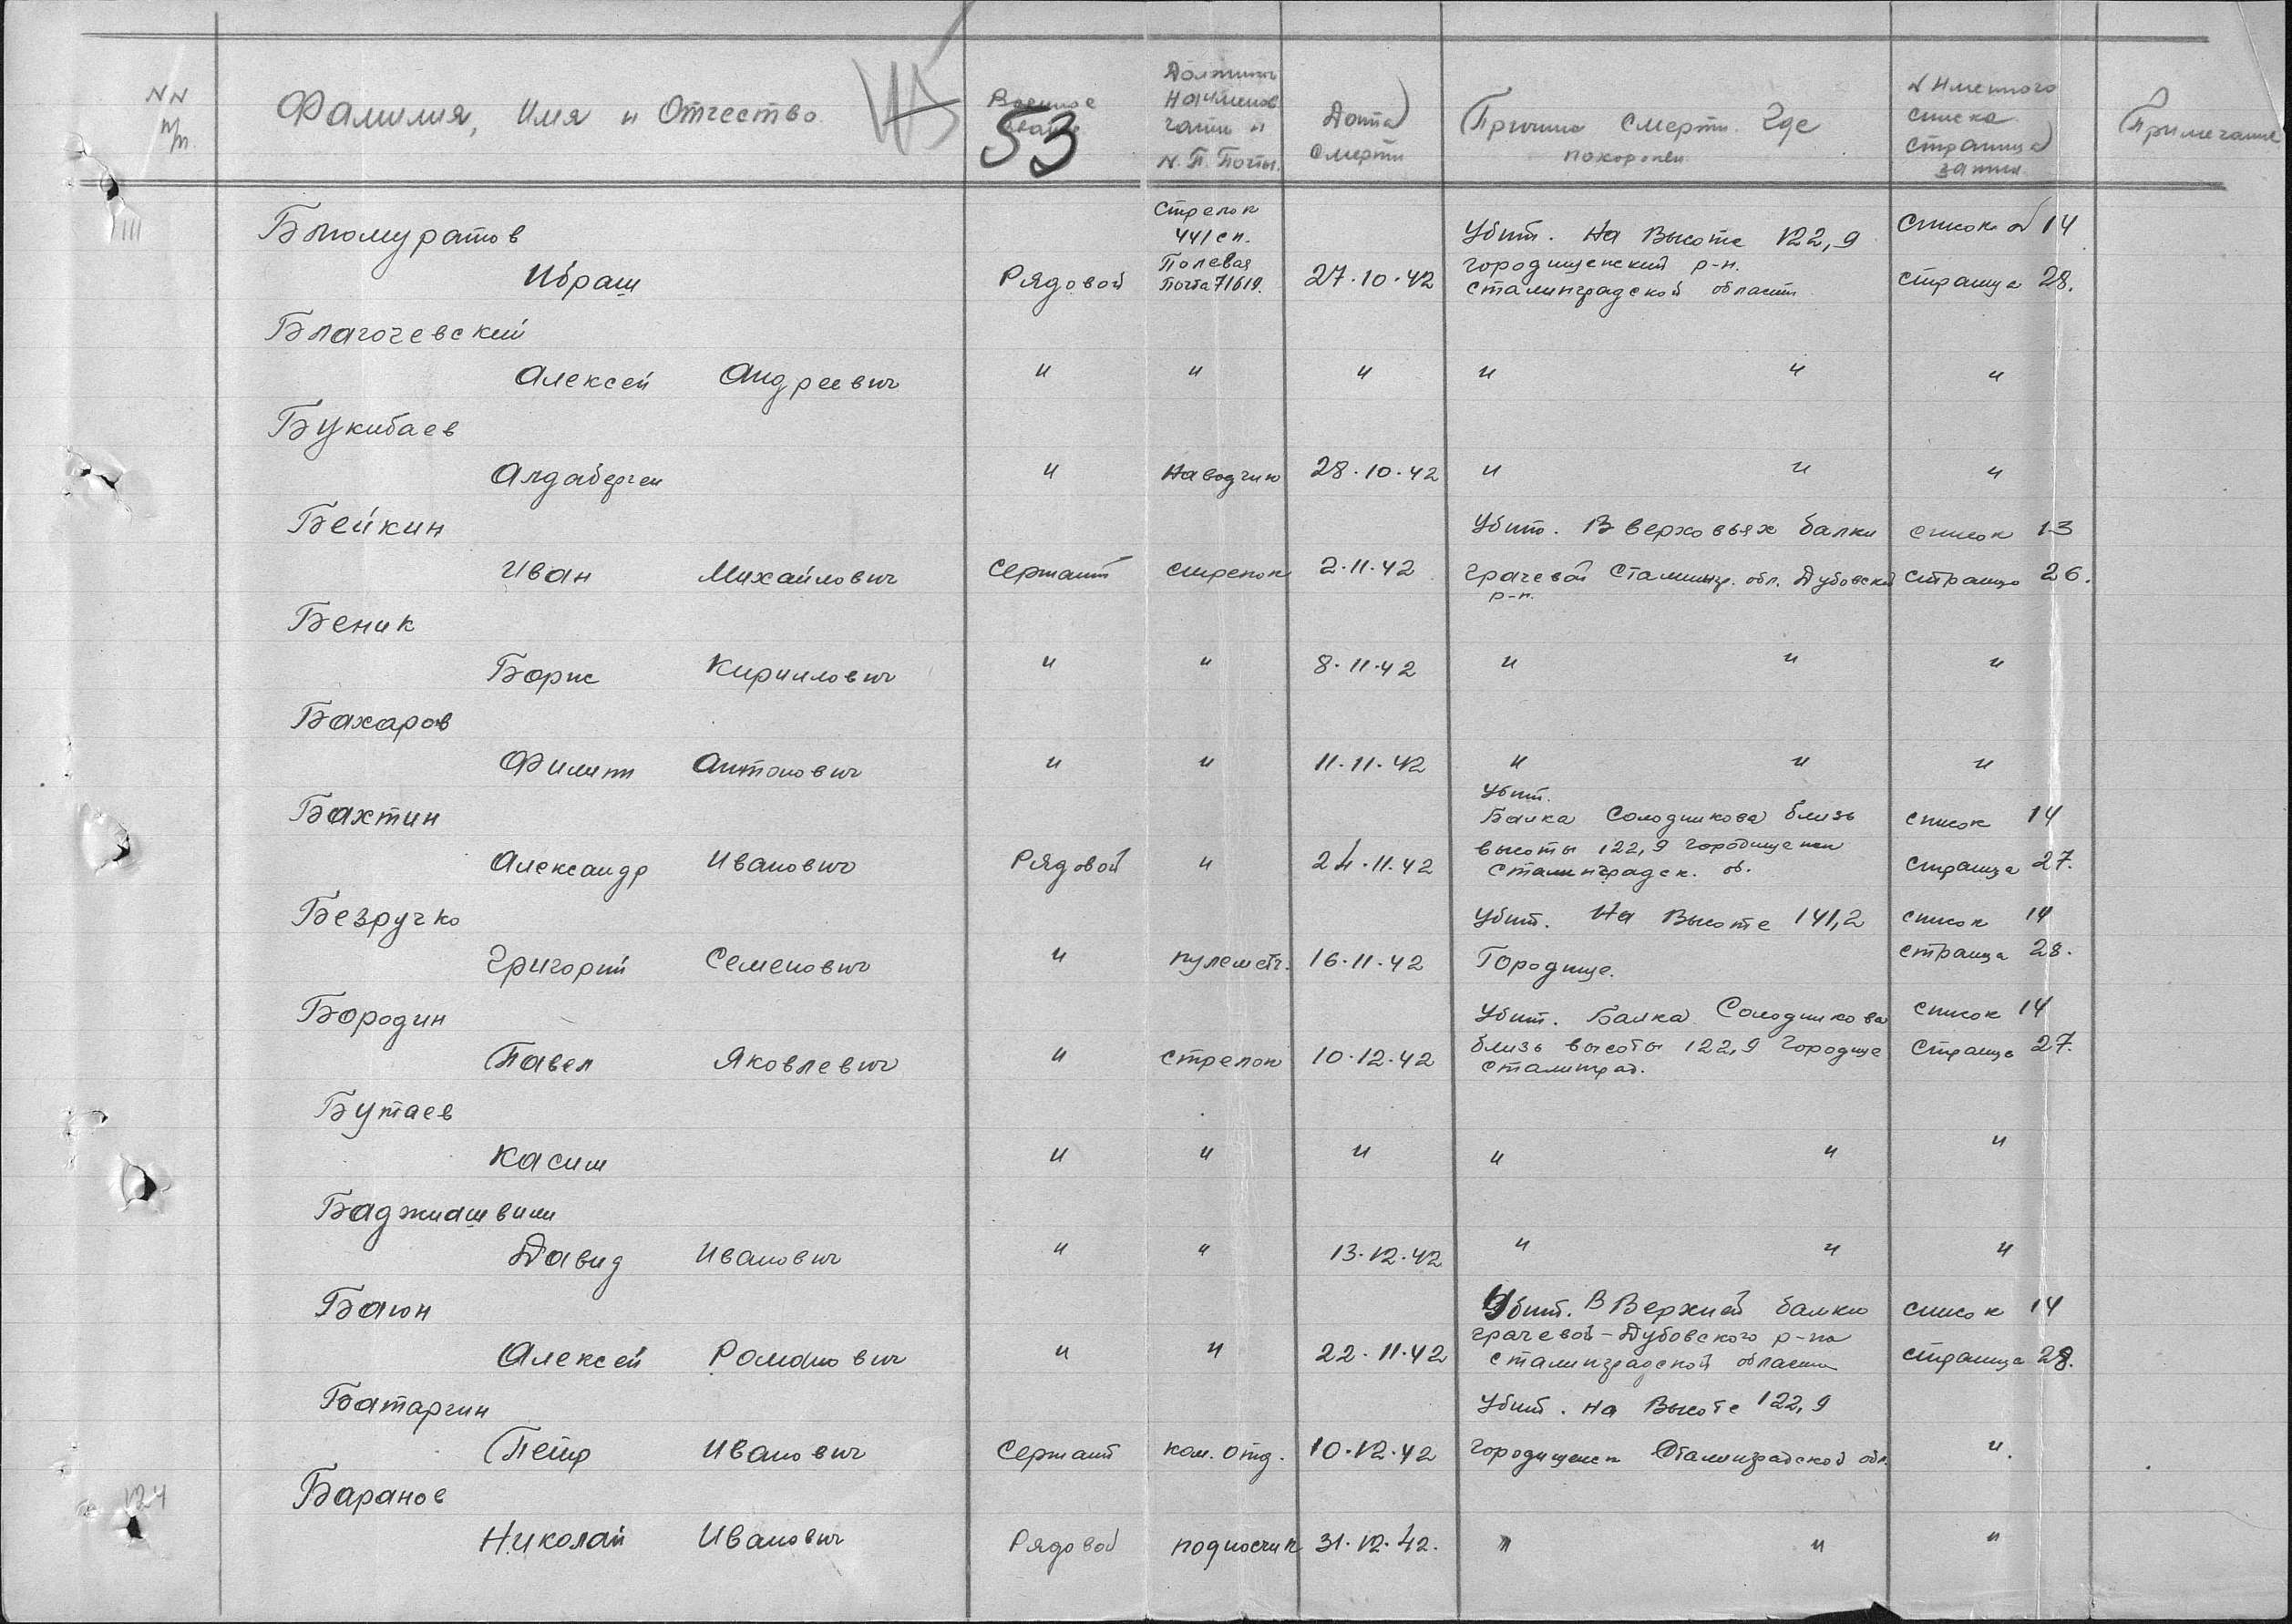 NN п/п
Фамилия, Имя и Отчество
53
Военное звание
Должность Наименов части и N. П. Почты.
Дата смерти
Причина смерти. Где похоронен
N Именного списка страница записи
Примечание
111
Бекмуратов
Ибраш
Рядовой
Стрелок 441 сп. Полевая Почта 71619.
27.10.42
Убит. На Высоте 122,9
Городищенский р-н.
Сталинградской области
Список N 14
страница 28.
Благочевский
Алексей Андреевич " " " " " "
Букибаев
Алдаберген " Наводчик 28.10.42 " " "
Бейкин
Убит. В верховьях балки список 13
Иван Михайлович Сержант стрелок 2.11.42 Грачевой Сталингр. обл. Дубовский страница 26.
р-н.
Беник
Борис Кириллович " " 8.11.42 " " "
Бахаров
Филипп Антонович " " 11.11.42 " " "
Убит.
Бахтин Балка Солодникова близь список 14
высоты 122,9 Городищенск
Александр Иванович Рядовой " 24.11.42 Сталинградск. об. страница 27.
Безручко Убит. На Высоте 141,2 список 14
Григорий Семенович " пулеметч. 16.11.42 Городище. страница 28.
Бородин Убит. Балка Солодникова список 14
Павел Яковлевич " стрелок 10.12.42 близь высоты 122,9 Городище страница 27.
Сталинград.
Бутаев
Касим " " " " " "
Баджиашвили
Давид Иванович " " 13.12.42 " " "
Баюн Убит. В Верхней балки список 14
Грачевой-Дубовского р-на
Алексей Романович " " 22.11.42 Сталинградской области страница 28.
Батаргин Убит. На Высоте 122,9
Петр Иванович Сержант ком. отд. 10.12.42 Городищенск Сталинградской обл. "
124
Баранов
Николай Иванович Рядовой подносчик 31.12.42. " " "